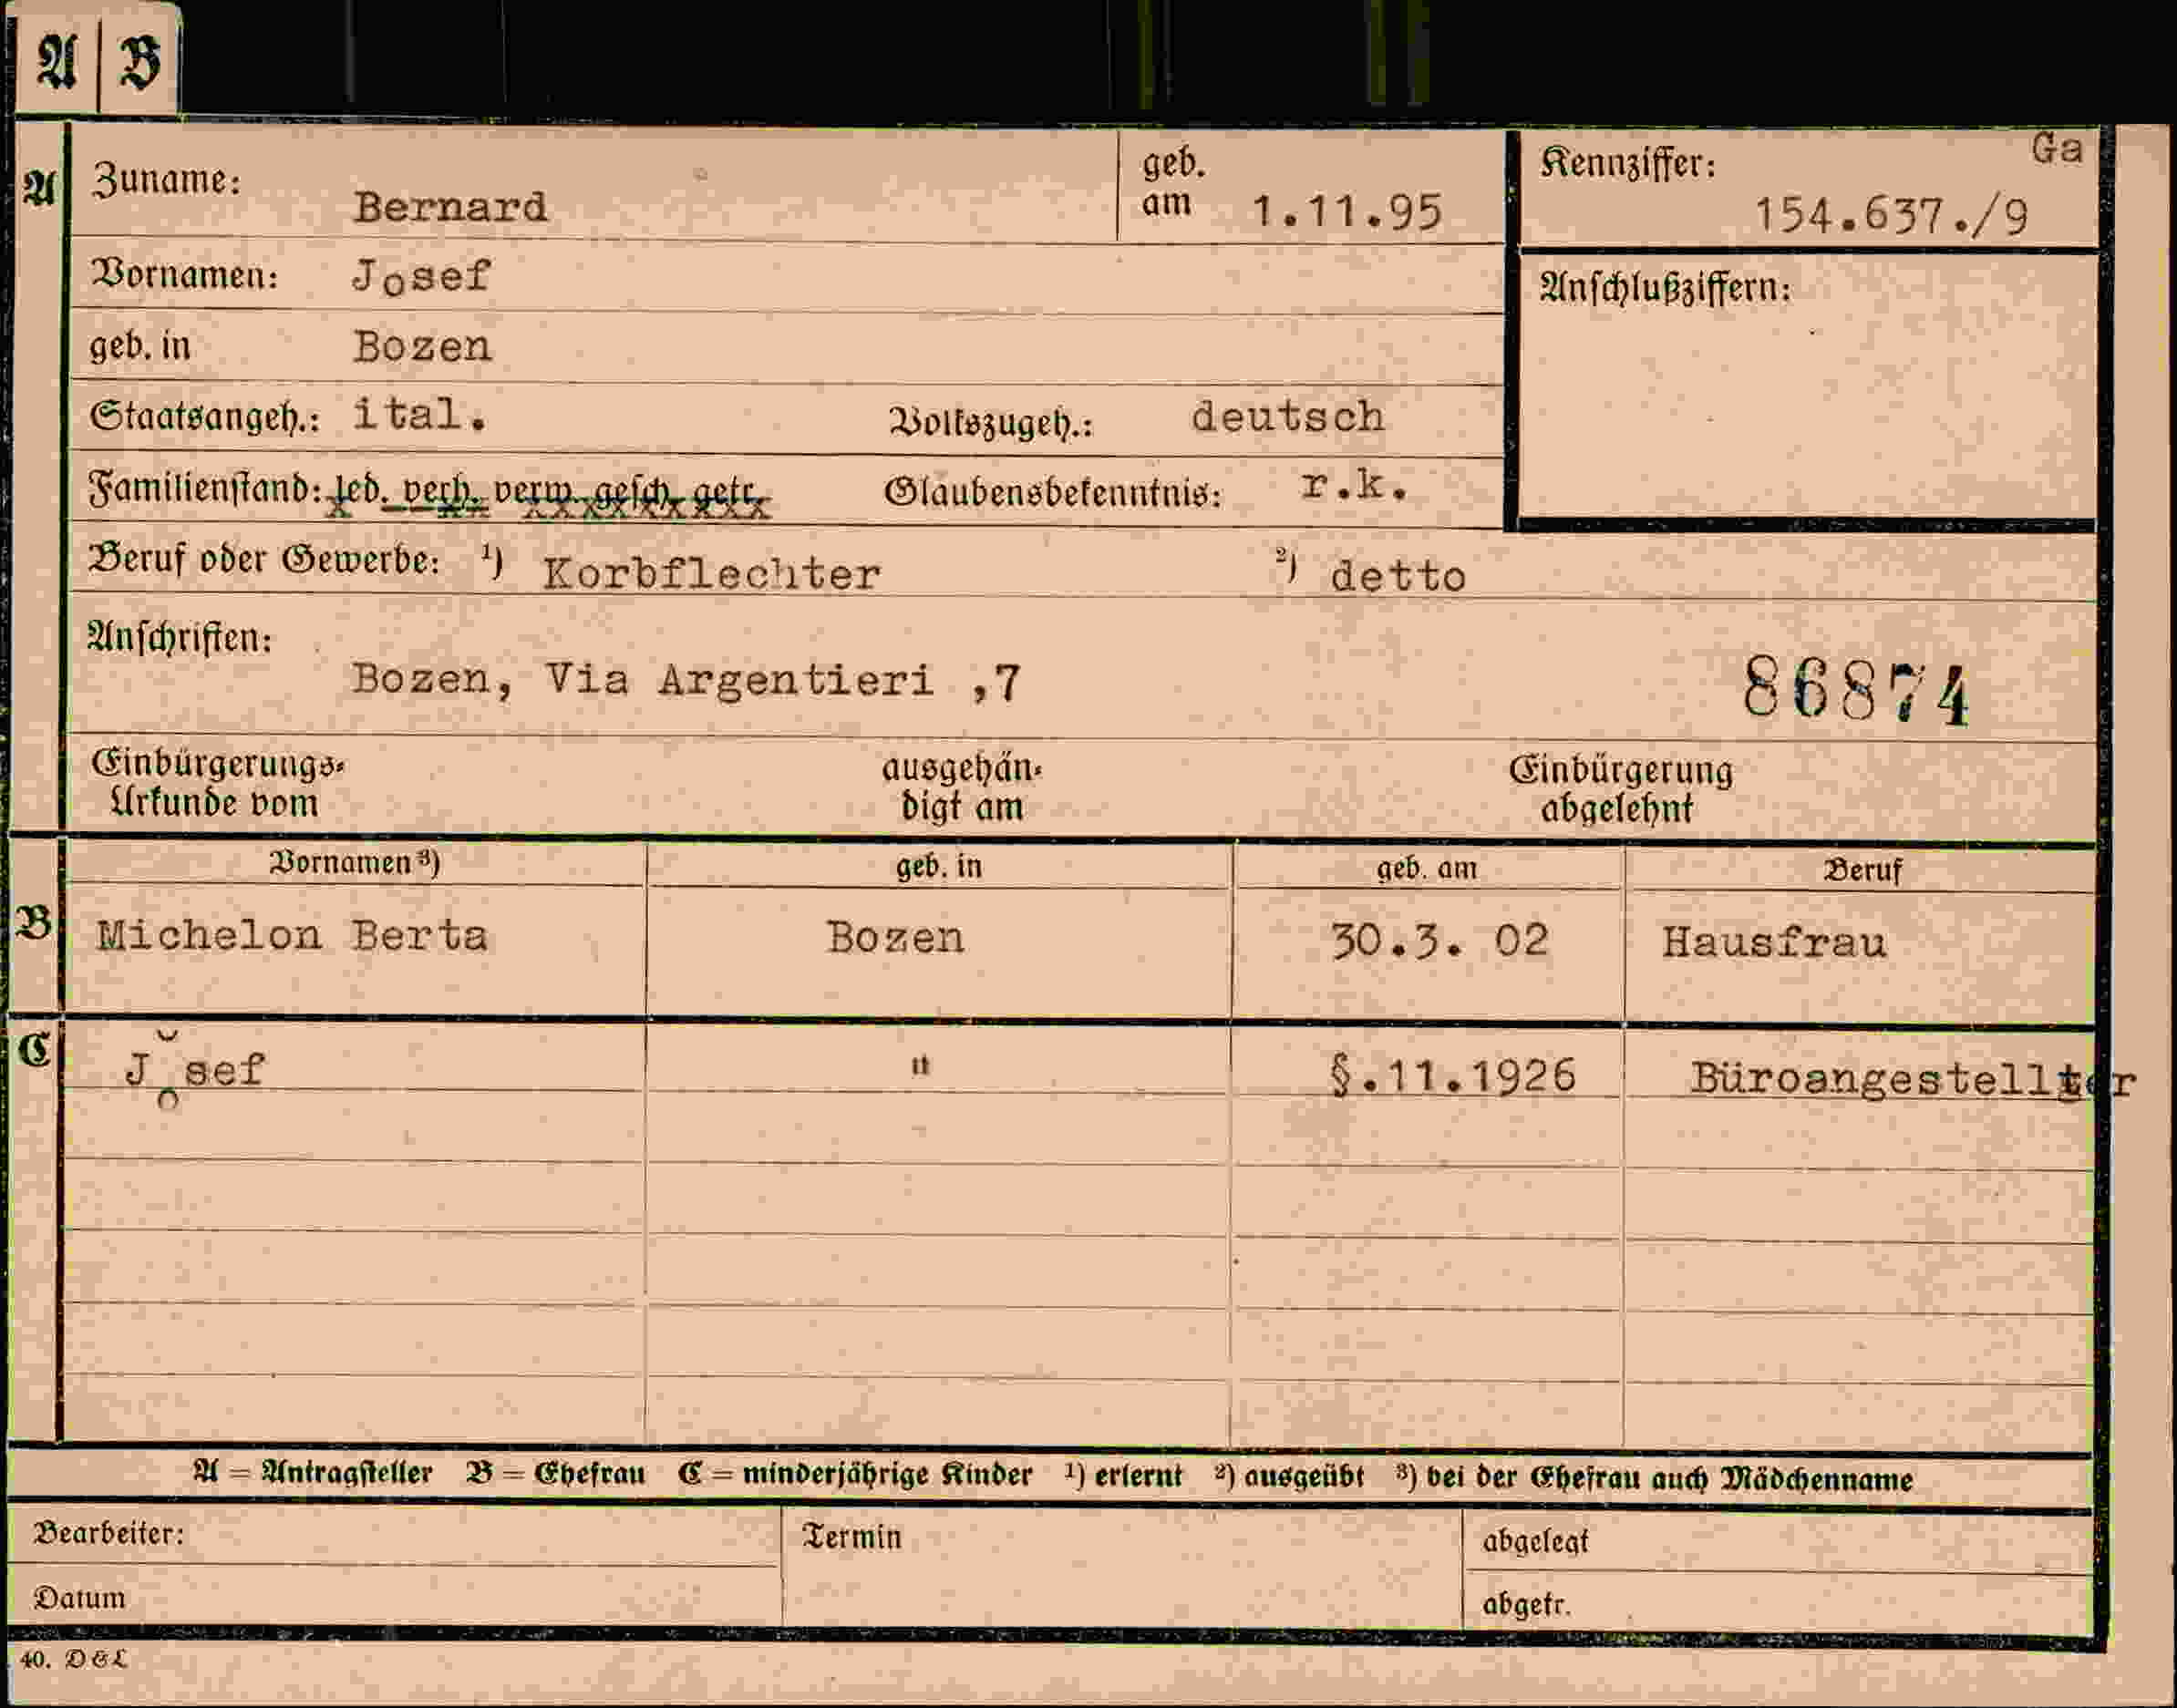 A B
A Zuname: Bernard geb. am 1.11.95 Kennziffer: Ga 154.637./9
Vornamen: Josef Anschlußziffern:
geb. in Bozen
Staatsangeh.: ital. Volkszugeh.: deutsch
Familienstand: led. verh. verw. gesch. getr. Glaubensbekenntnis: r.k.
Beruf oder Gewerbe: ¹) Korbflechter ²) detto
Anschriften:
Bozen, Via Argentieri ,7 86874
Einbürgerungs- ausgehän- Einbürgerung
Urkunde vom digt am abgelehnt
Vornamen ³) geb. in geb. am Beruf
B Michelon Berta Bozen 30.3. 02 Hausfrau
C Josef " §.11.1926 Büroangestellter
A = Antragsteller B = Ehefrau C = minderjährige Kinder ¹) erlernt ²) ausgeübt ³) bei der Ehefrau auch Mädchenname
Bearbeiter: Termin abgelegt
Datum abgetr.
40. D & L